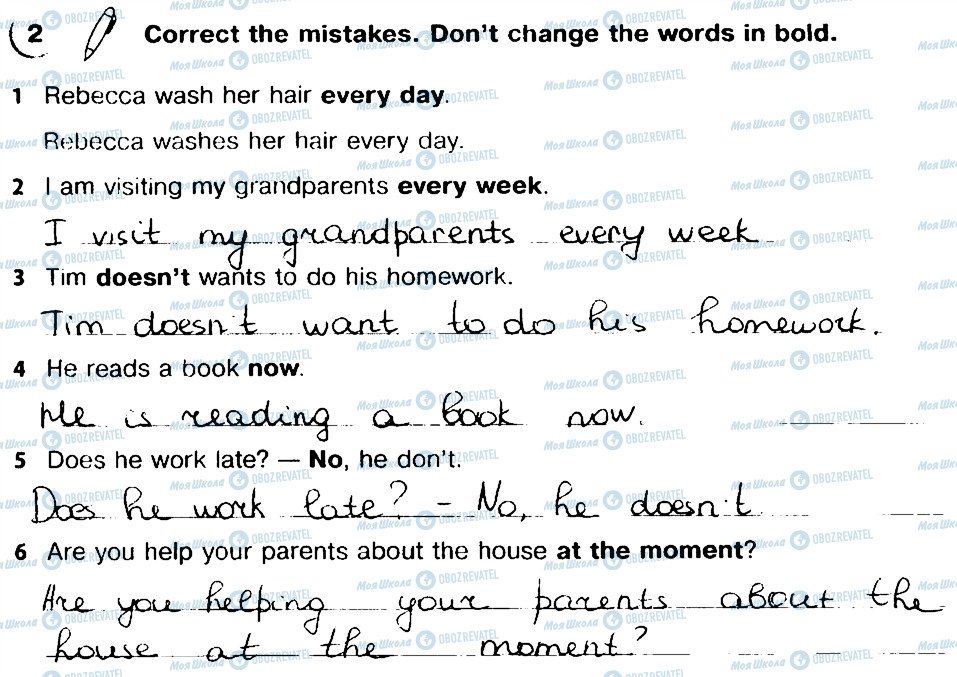 2 Correct the mistakes. Don't change the words in bold.
1 Rebecca wash her hair every day.
Rebecca washes her hair every day.
2 I am visiting my grandparents every week.
I visit my grandparents every week
3 Tim doesn't wants to do his homework.
Tim doesn't want to do his homework.
4 He reads a book now.
He is reading a book now.
5 Does he work late? — No, he don't.
Does he work late? - No, he doesn't
6 Are you help your parents about the house at the moment?
Are you helping your parents about the
house at the moment?
Моя Школа OBOZREVATEL